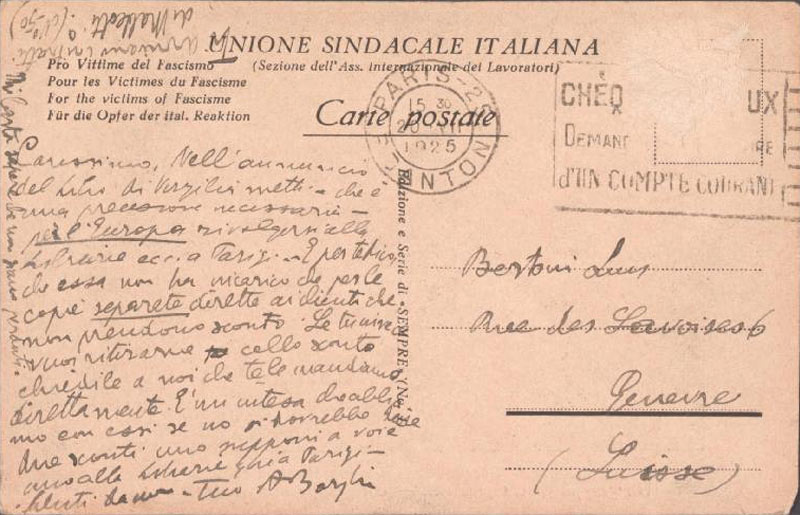 UNIONE SINDACALE ITALIANA
(Sezione dell'Ass. Internazionale dei Lavoratori)
Pro Vittime del Fascismo
Pour les Victimes du Fascisme
For the victims of Fascisme
Für die Opfer der ital. Reaktion
Carte postale
PARIS-25
15 30
1925
DANTON
CHÈQ UX
DEMAND RE
d'UN COMPTE COURANT
Edizione e Serie di «SEMPRE»
Carissimo, Nell'annuncio
del libro di Virgilio metti - che è
una precisione necessaria -
per l'Europa rivolgersi alla
Librairie ecc. a Parigi -
che essa non ha incarico che per le
copie separate dirette ai clienti che
non prendono sconto. Se tu invece
vuoi ritirarne collo sconto
chiedile a noi che te le mandiamo
direttamente. È un'intesa che abbia
mo con essi se no si dovrebbe fare
due sconti uno supponi a voi e
uno alla Librerie Parigi -
Tuo A Borghi
Bertoni Luigi
Rue des Savoises 6
Geneve
(Suisse)